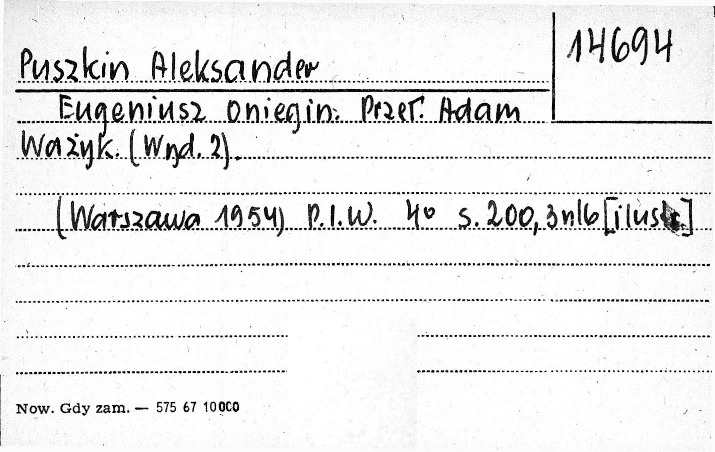 14694
Puszkin Aleksander
Eugeniusz Oniegin. Przeł. Adam
Ważyk. (Wyd. 2).
(Warszawa 1954) P.I.W. 4° s. 200, 3nlb [ilustr.]
Now. Gdy zam. — 575 67 10000